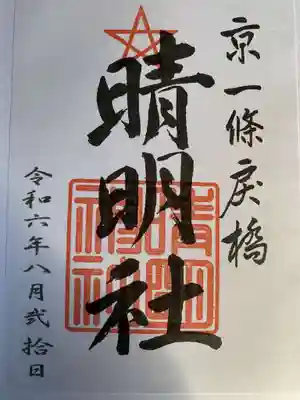 京一條戻橋
晴明社
令和六年八月弐拾日